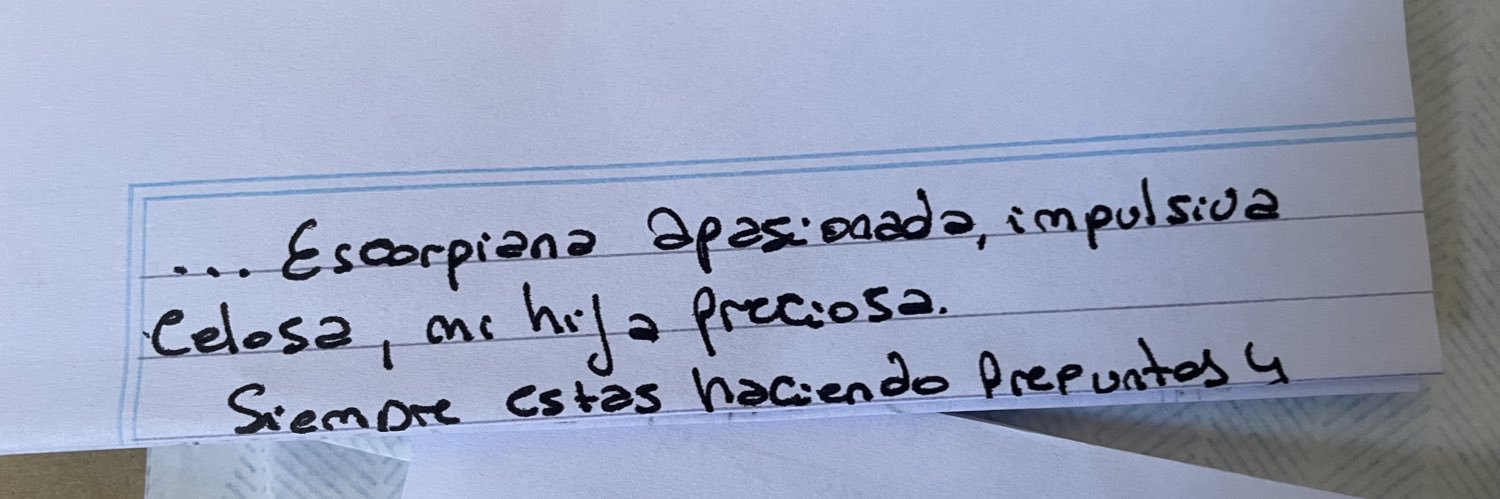 ... Escorpiana apasionada, impulsiva
Celosa, mi hija preciosa.
Siempre estas haciendo Preguntas y